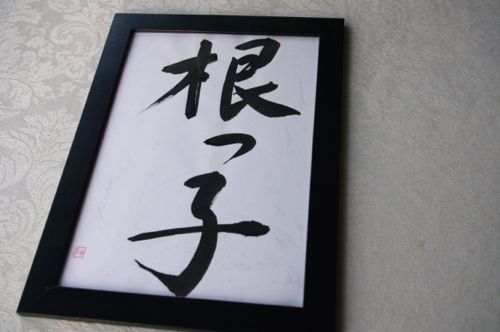 根っ子